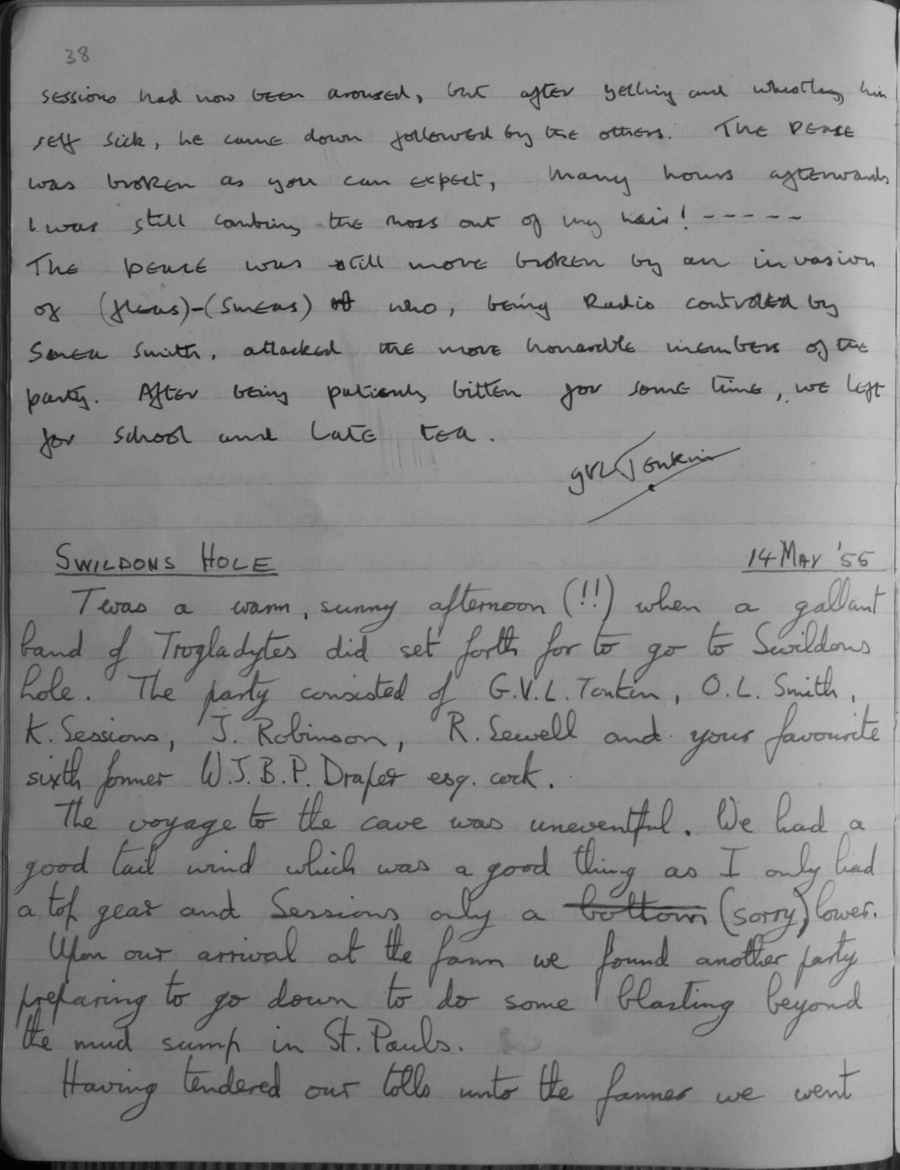 38
sessions had now been aroused, but after yelling and whistling him
self sick, he came down followed by the others. The peace
was broken as you can expect, many hours afterwards
I was still combing the moss out of my hair! -----
The peace was still more broken by an invasion
of (fleas)-(smeas) who, being Radio controlled by
Smea Smith, attacked the more honarable members of the
party. After being patiently bitten for some time, we left
for school and late tea.
GVL Tonkin
SWILDONS HOLE 14 MAY '55
Twas a warm, sunny afternoon (!!) when a gallant
band of Trogladytes did set forth for to go to Swildons
hole. The party consisted of G.V.L. Tonkin, O.L. Smith,
K. Sessions, J. Robinson, R. Sewell and your favourite
sixth former W.J.B.P. Draper esq. cock.
The voyage to the cave was uneventful. We had a
good tail wind which was a good thing as I only had
a top gear and Sessions only a bottom (sorry) lower.
Upon our arrival at the farm we found another party
preparing to go down to do some blasting beyond
the mud sump in St. Pauls.
Having tendered our tolls unto the farmer we went